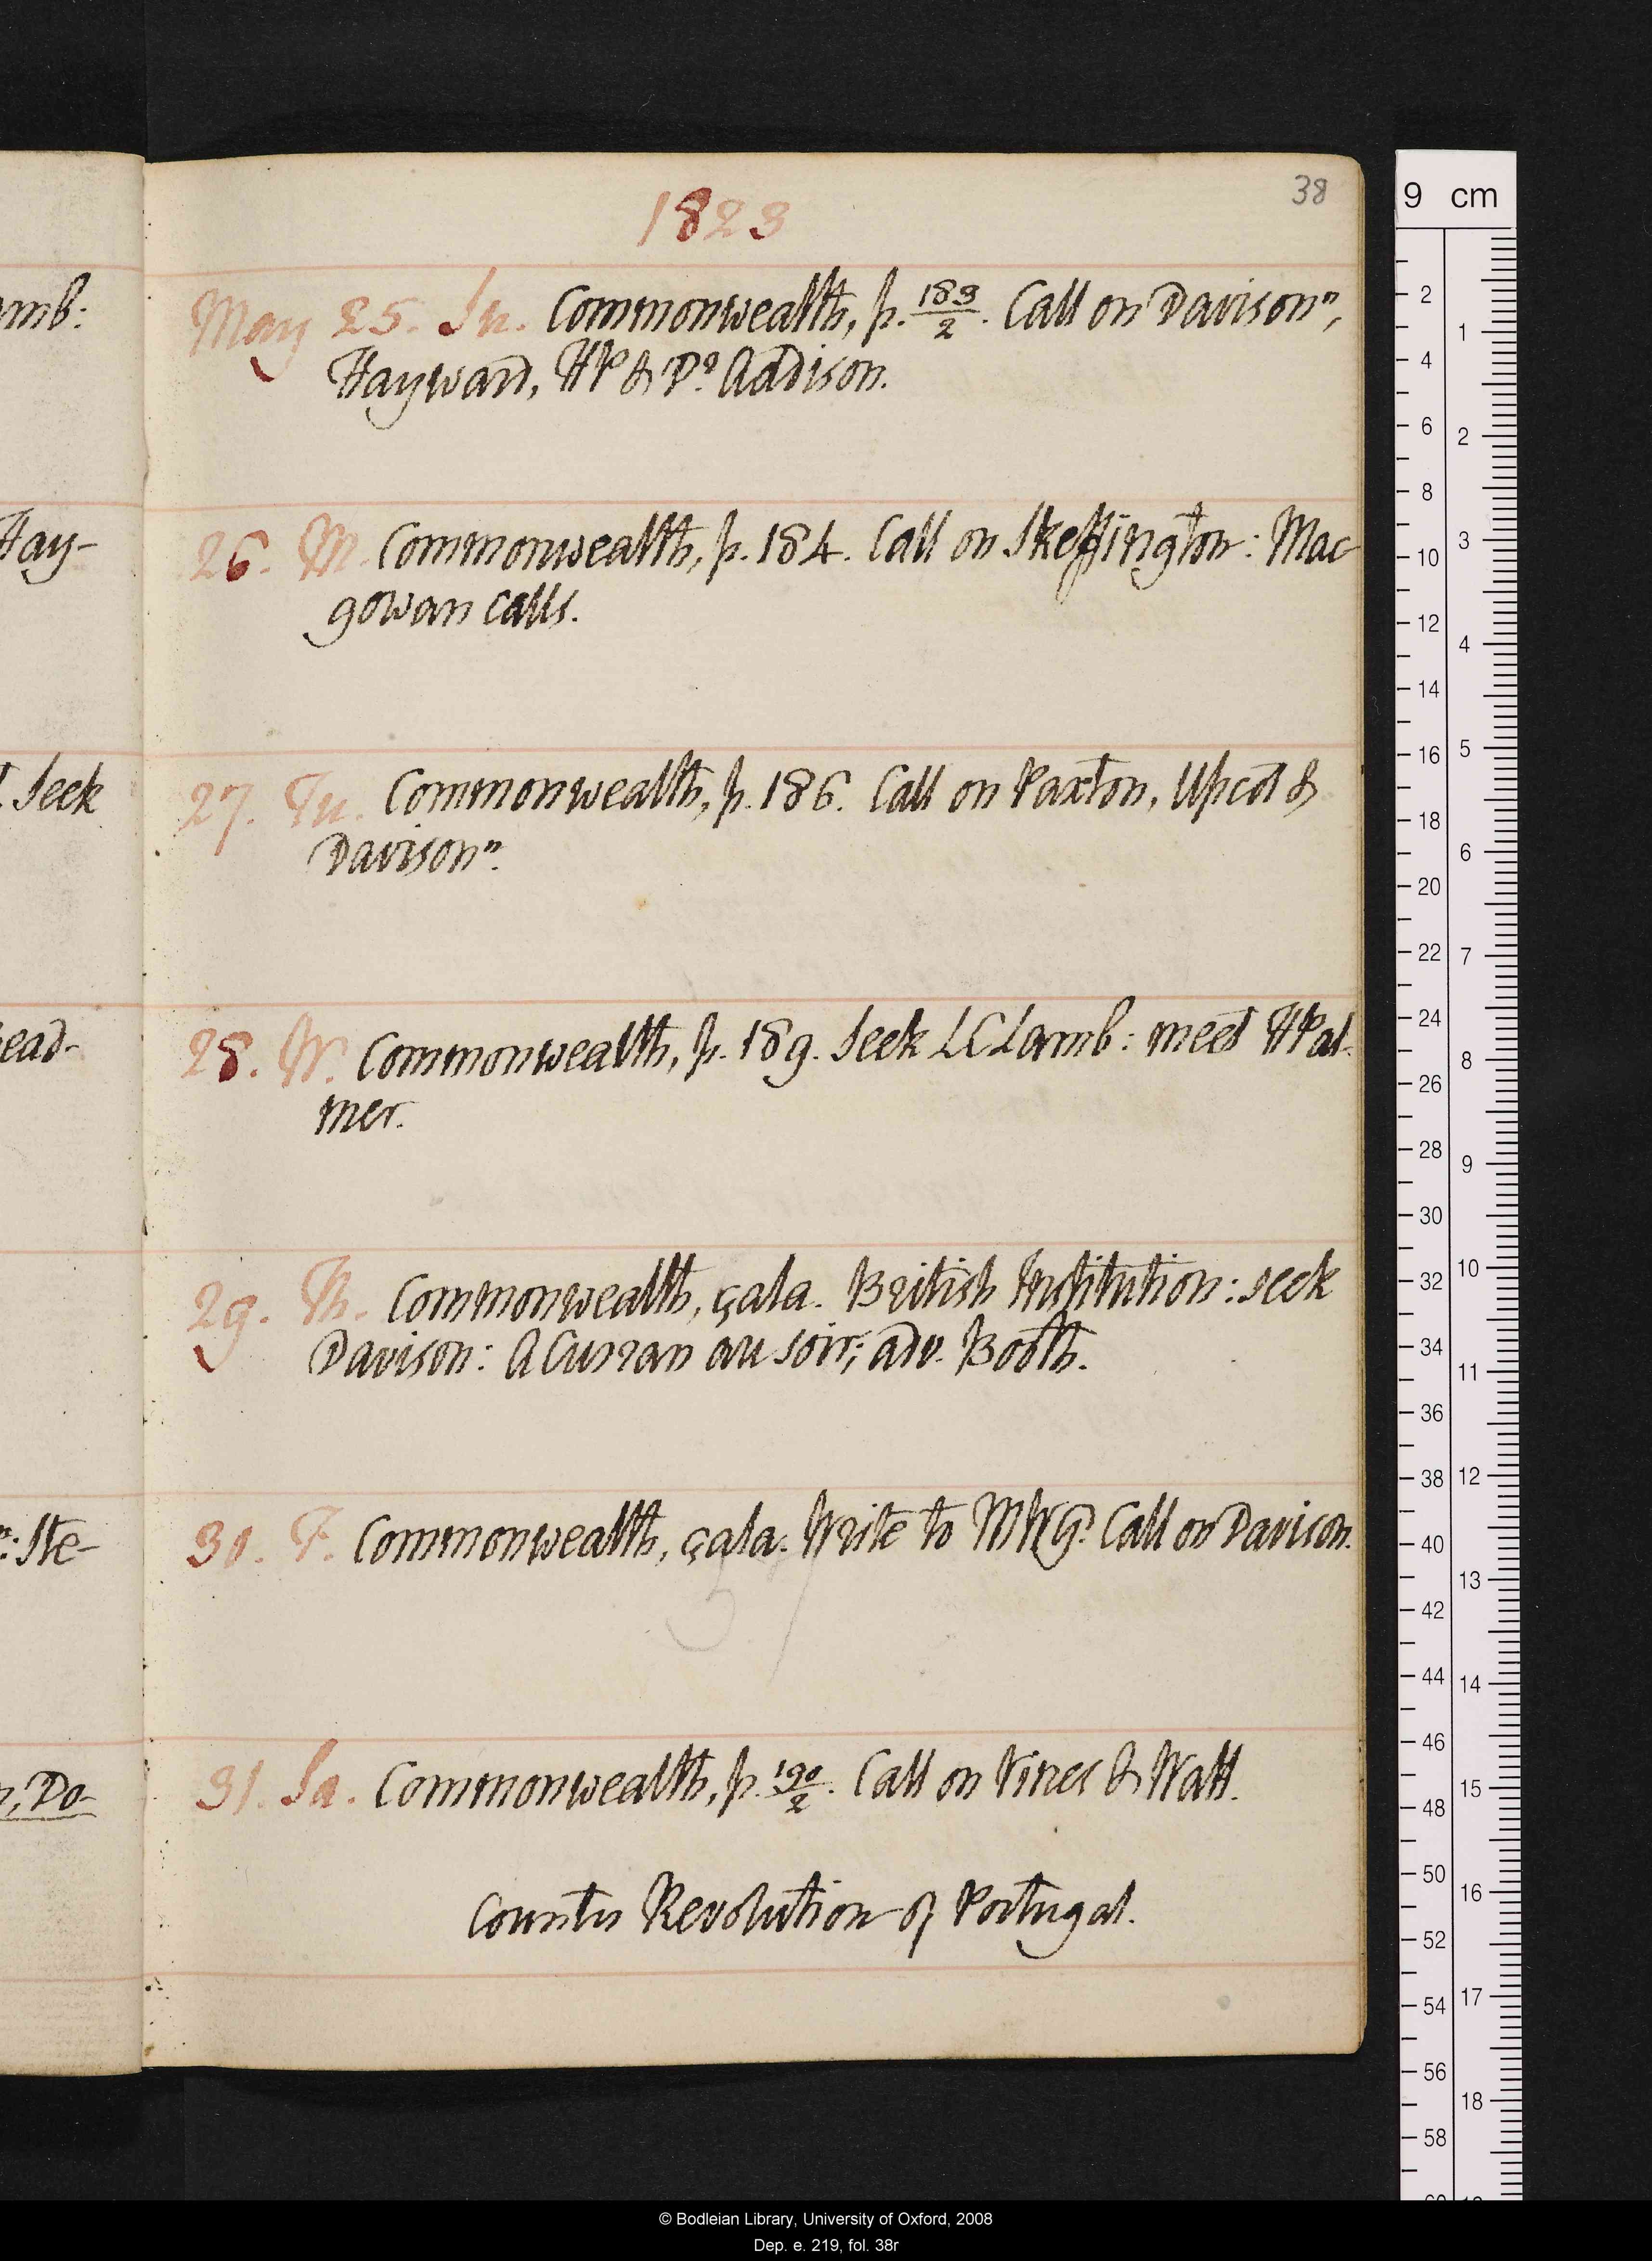 38
1823
mb:
May 25. Su. Commonwealth, p. 183/2. Call on Davisonⁿ,
Hayward, HP & Dº Addison.
Hay-
26. M. Commonwealth, p. 184. Call on Skeffington: Mac-
gowan calls.
Seek
27. Tu. Commonwealth, p. 186. Call on Paxton, Upcot &
Davisonⁿ.
ead-
28. W. Commonwealth, p. 189. Seek LC Lamb: meet HPal-
mer.
29. Th. Commonwealth, çala. British Institution: seek
Davison: A Curran au soir; adv. Booth.
Ste-
30. F. Commonwealth, çala. Write to MWG. Call on Davison.
Do-
31. Sa. Commonwealth, p. 190/2. Call on Vines & Watt.
Counter Revolution of Portugal.
9 cm
© Bodleian Library, University of Oxford, 2008
Dep. e. 219, fol. 38r